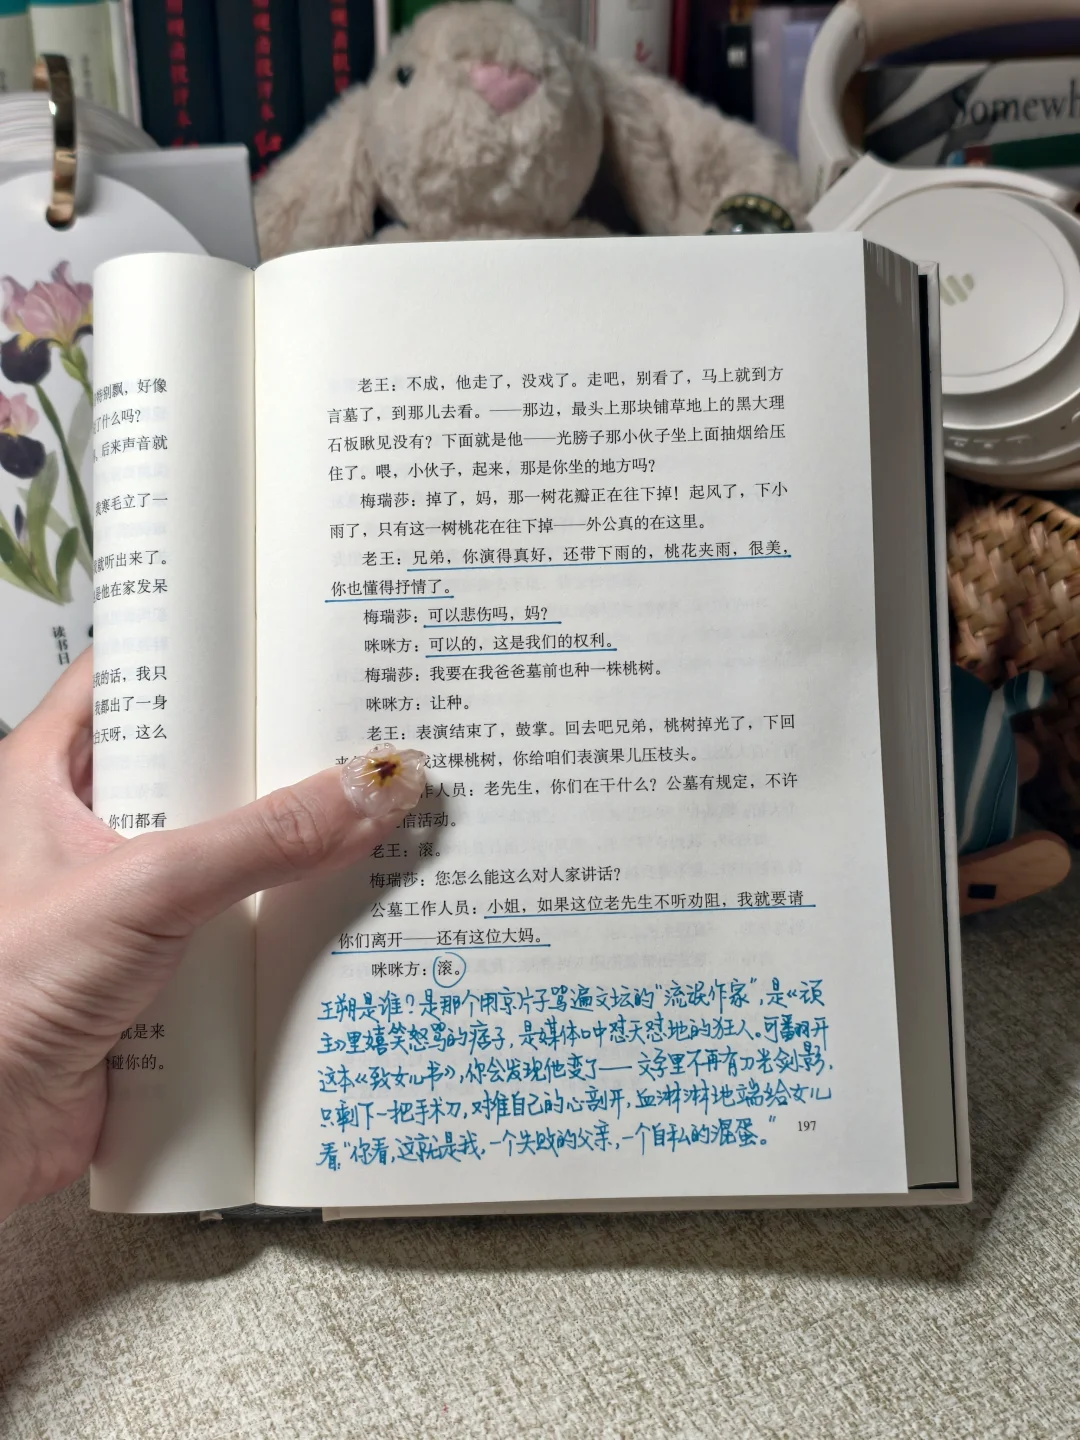 特别飘，好像
了什么吗？
后来声音就
寒毛立了一
就听出来了。
是他在家发呆
我的话，我只
我都出了一身
白天呀，这么
你们都看
就是来
碰你的。
读书日
Somewh
老王：不成，他走了，没戏了。走吧，别看了，马上就到方
言墓了，到那儿去看。——那边，最头上那块铺草地上的黑大理
石板瞅见没有？下面就是他——光膀子那小伙子坐上面抽烟给压
住了。喂，小伙子，起来，那是你坐的地方吗？
梅瑞莎：掉了，妈，那一树花瓣正在往下掉！起风了，下小
雨了，只有这一树桃花在往下掉——外公真的在这里。
老王：兄弟，你演得真好，还带下雨的，桃花夹雨，很美，
你也懂得抒情了。
梅瑞莎：可以悲伤吗，妈？
咪咪方：可以的，这是我们的权利。
梅瑞莎：我要在我爸爸墓前也种一株桃树。
咪咪方：让种。
老王：表演结束了，鼓掌。回去吧兄弟，桃树掉光了，下回
来 这棵桃树，你给咱们表演果儿压枝头。
作人员：老先生，你们在干什么？公墓有规定，不许
信活动。
老王：滚。
梅瑞莎：您怎么能这么对人家讲话？
公墓工作人员：小姐，如果这位老先生不听劝阻，我就要请
你们离开——还有这位大妈。
咪咪方：滚。
王朔是谁？是那个用京片子骂遍文坛的“流氓作家”，是《顽
主》里嬉笑怒骂的痞子，是媒体口中怼天怼地的狂人。可翻开
这本《致女儿书》，你会发现他变了——文字里不再有刀光剑影，
只剩下一把手术刀，对准自己的心剖开，血淋淋地端给女儿
看：“你看，这就是我，一个失败的父亲，一个自私的混蛋。”
197